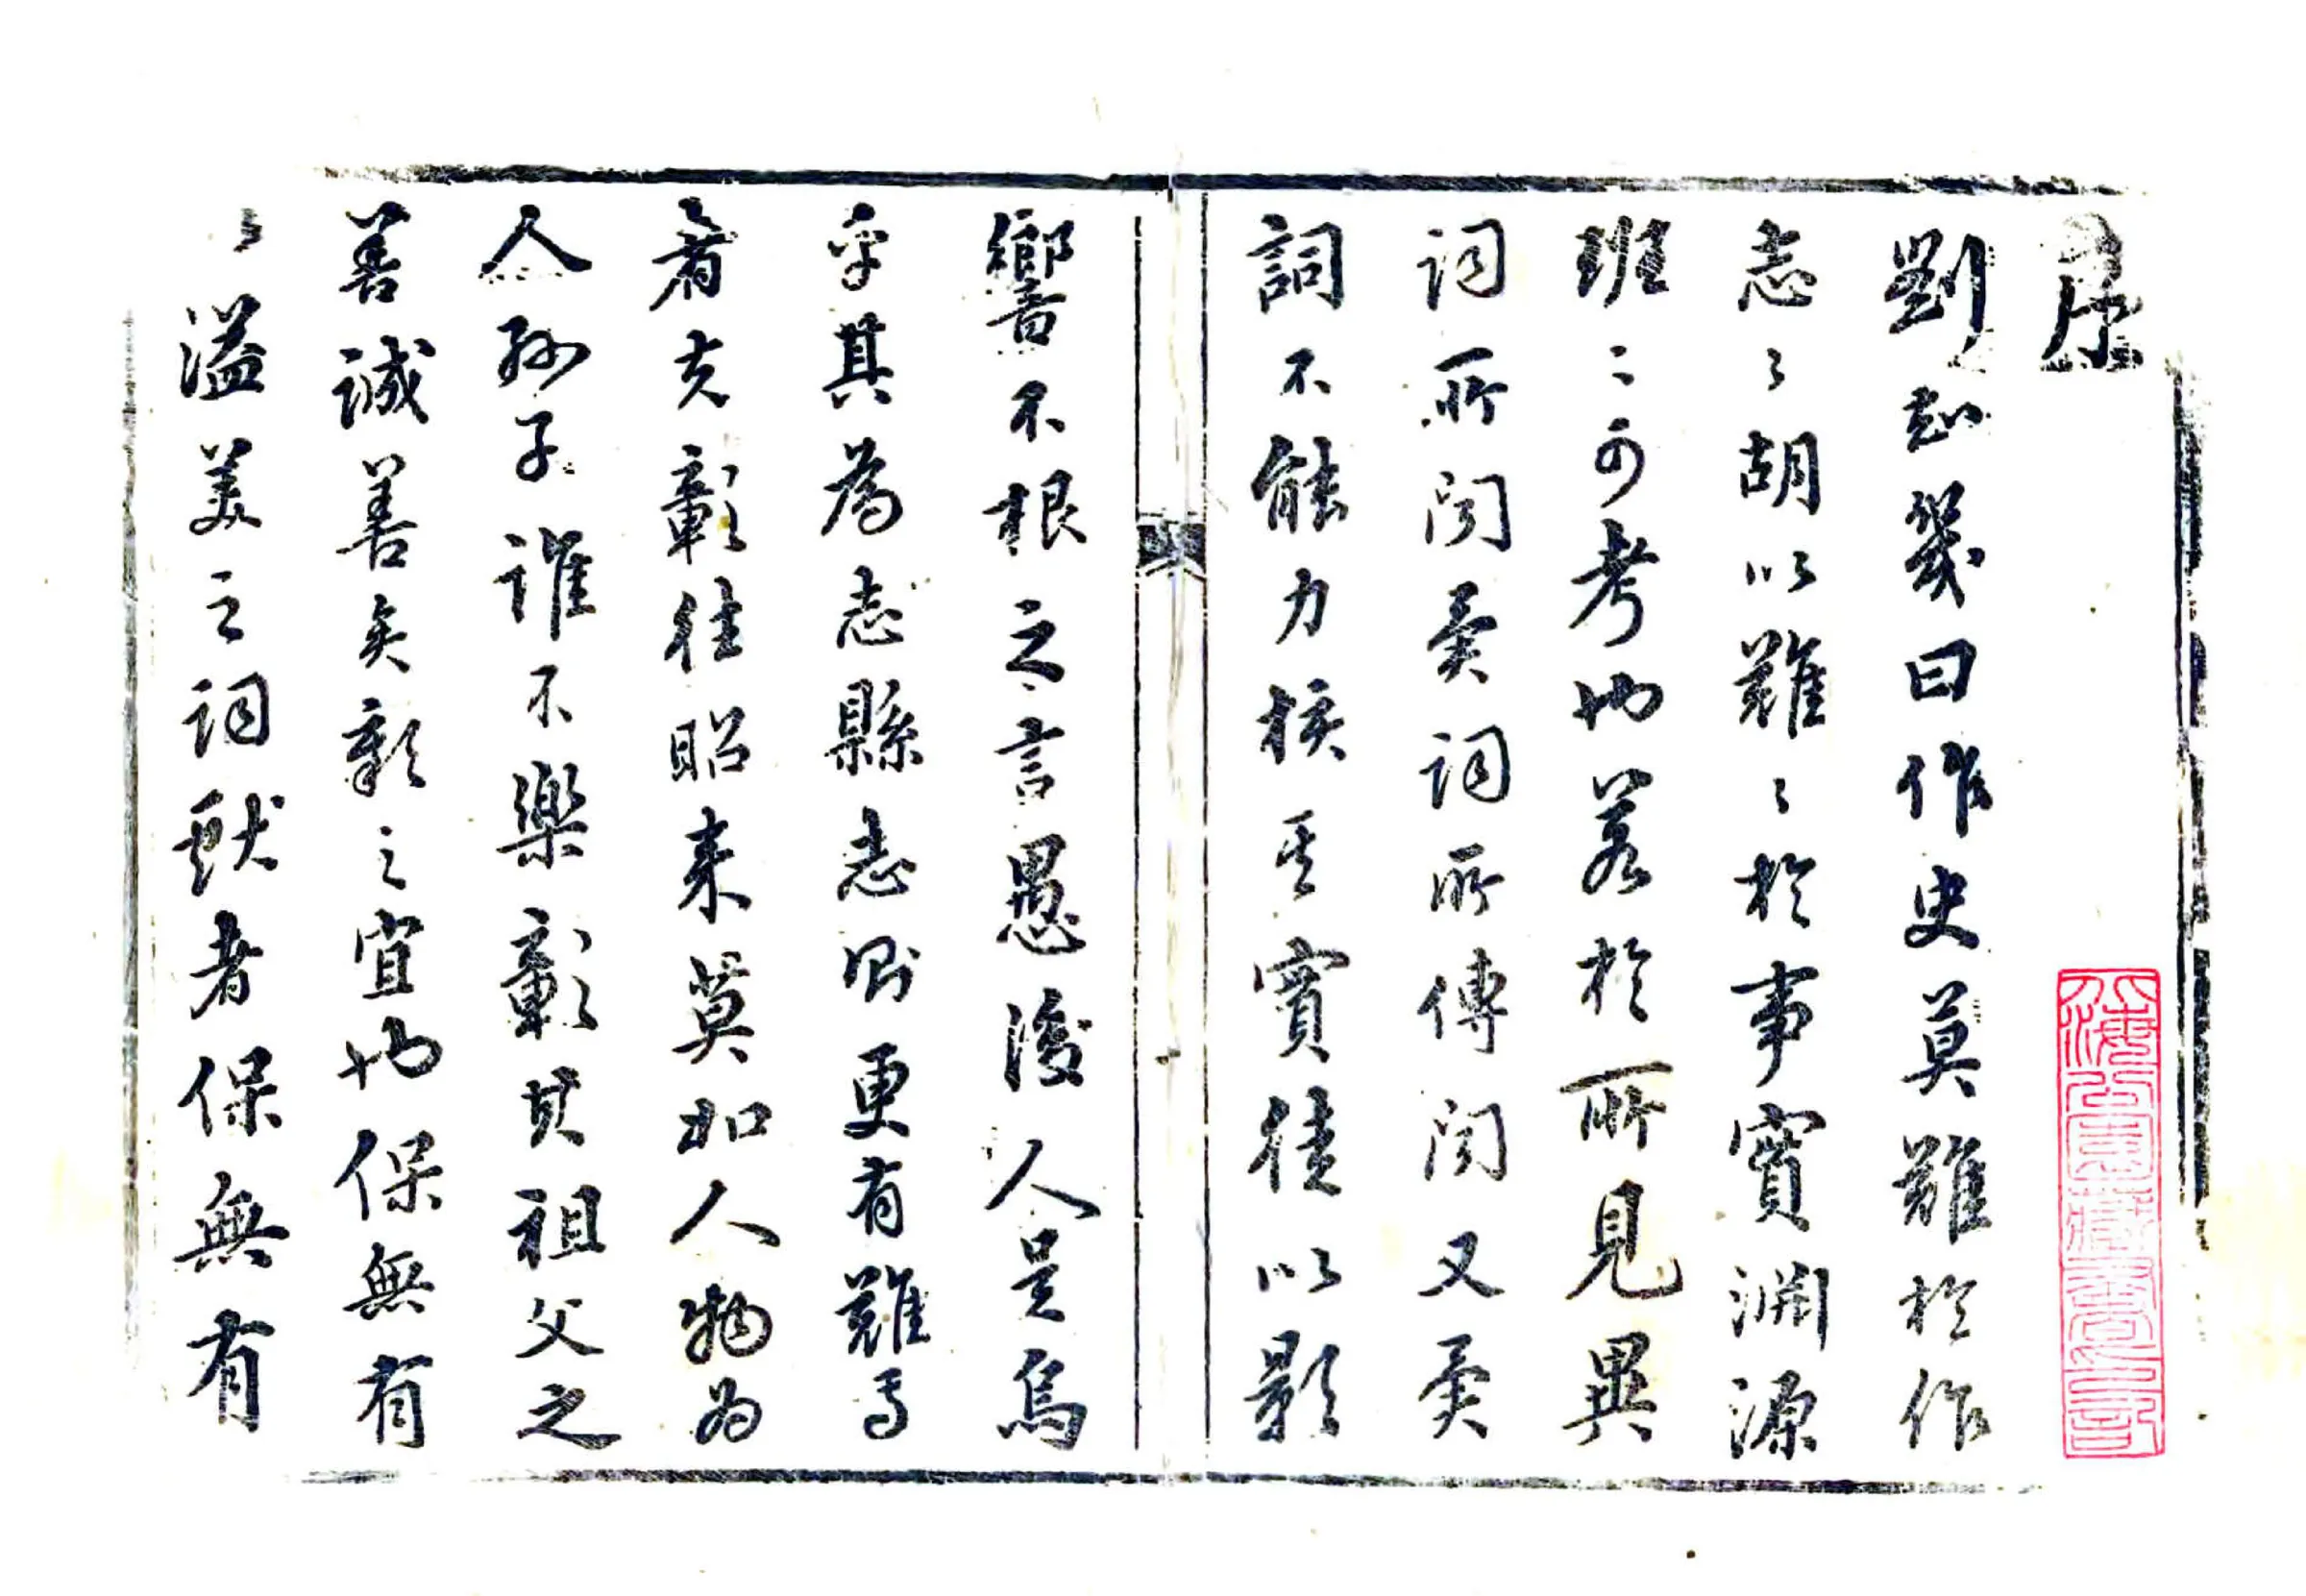 序
劉知幾曰作史莫難於作
志〻胡以難〻於事實淵源
班〻可考也若於所見異
詞所聞異詞所傳聞又異
詞不能力核其實徒以影
響不根之言愚後人是烏
乎其為志縣志則更有難焉
者夫彰往昭來莫如人物為
人孫子誰不樂彰其祖父之
善誠善矣彰之宜也保無有
〻溢美之詞獻者保無有